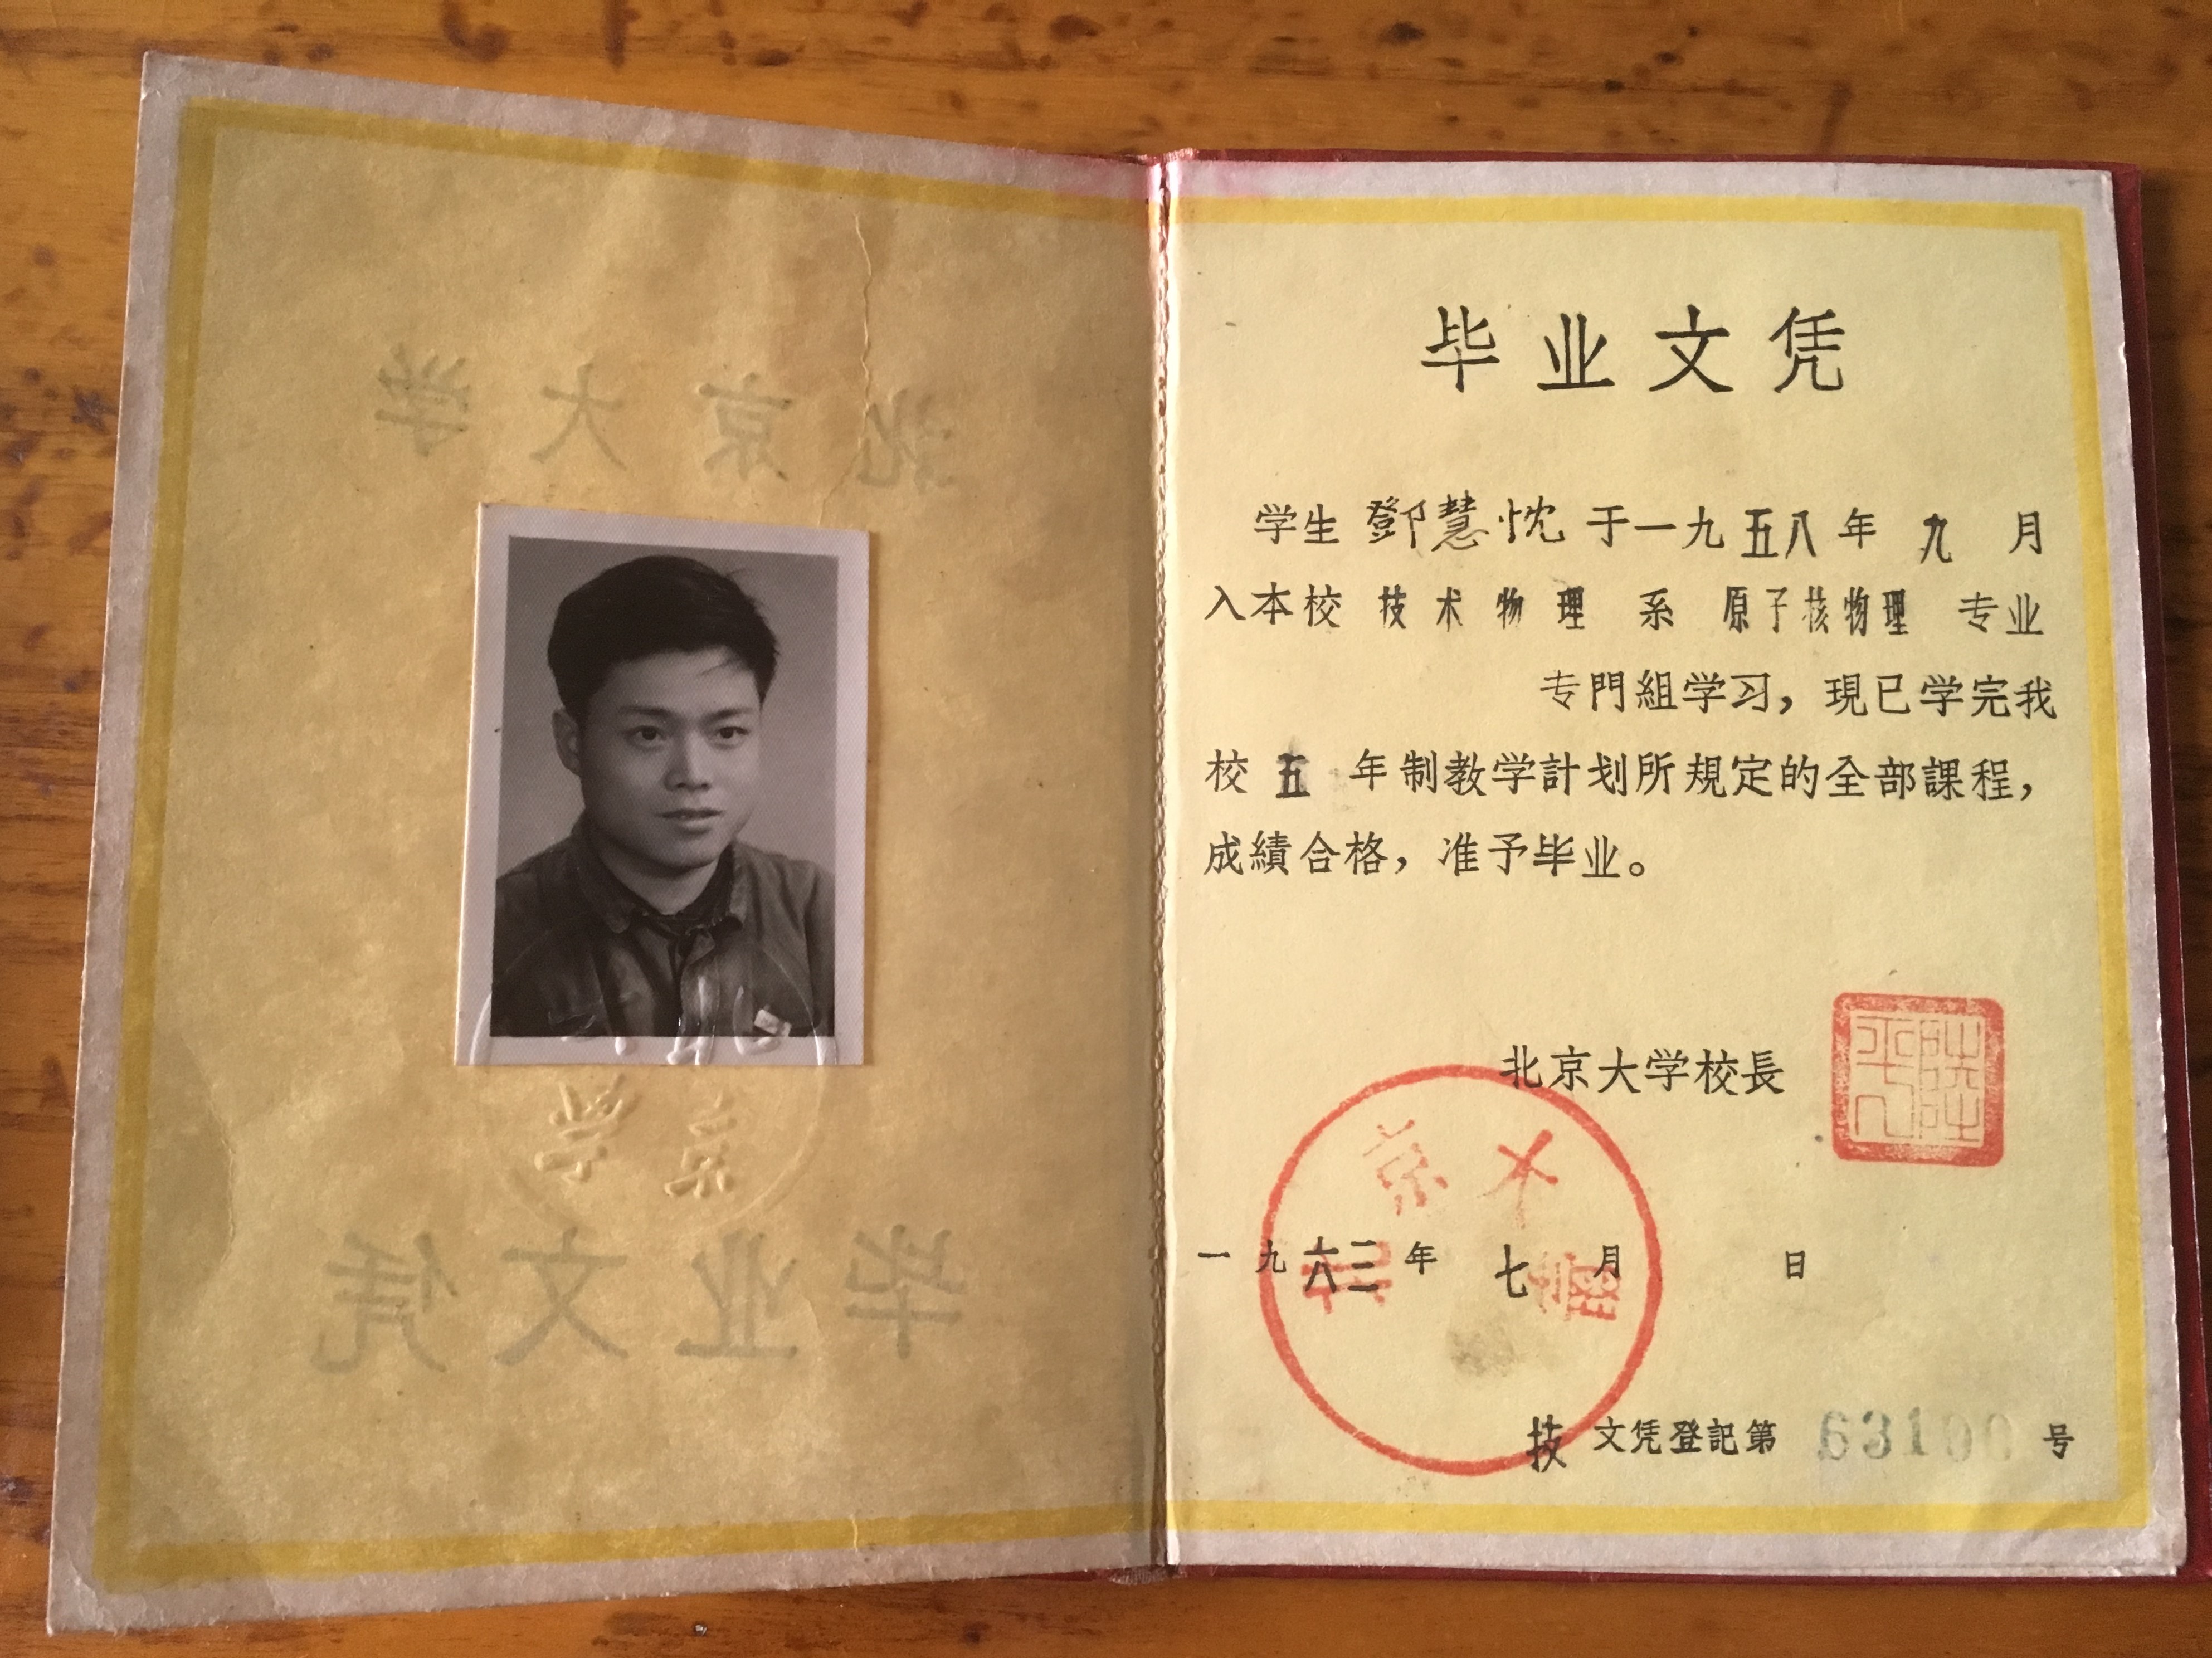 北京大学
京
学
毕业文凭
毕业文凭
学生 鄧慧忱 于一九五八年 九 月
入本校 技术物理 系 原子核物理 专业
专門組学习，現已学完我
校 五 年制教学計划所規定的全部課程，
成績合格，准予毕业。
北京大学校長
陸平
北京大学
一九六三年 七 月 日
技 文凭登記第 63100 号